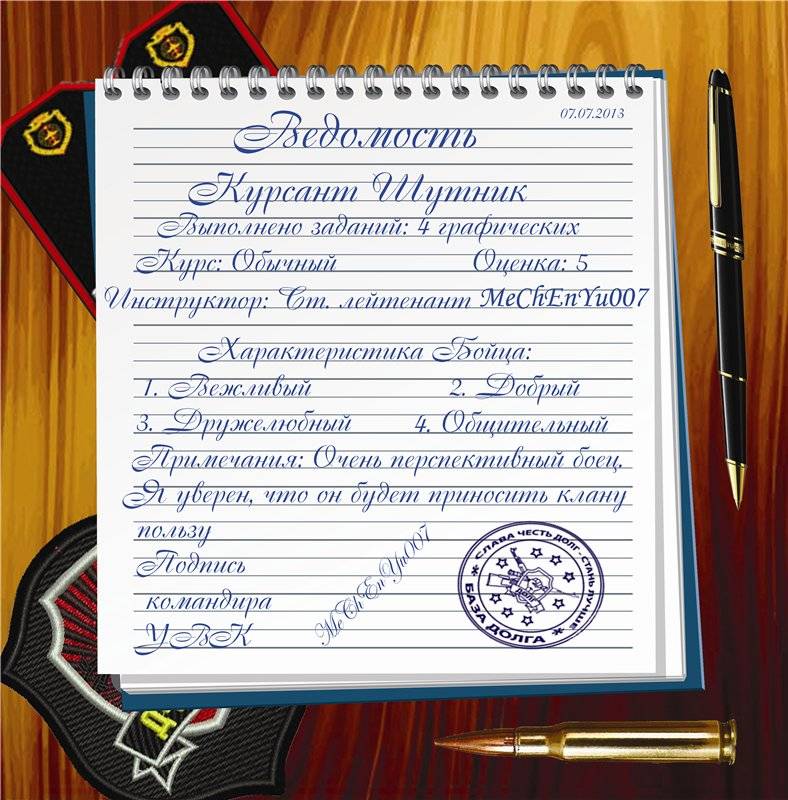 07.07.2013
Ведомость
Курсант Шутник
Выполнено заданий: 4 графических
Курс: Обычный Оценка: 5
Инструктор: Ст. лейтенант MeChEnYu007
Характеристика Бойца:
1. Вежливый 2. Добрый
3. Дружелюбный 4. Общительный
Примечания: Очень перспективный боец.
Я уверен, что он будет приносить клану
пользу
Подпись
командира
УВК
MeChEnYu007
СЛАВА ЧЕСТЬ ДОЛГ - СТАНЬ ЛУЧШЕ
БАЗА ДОЛГА